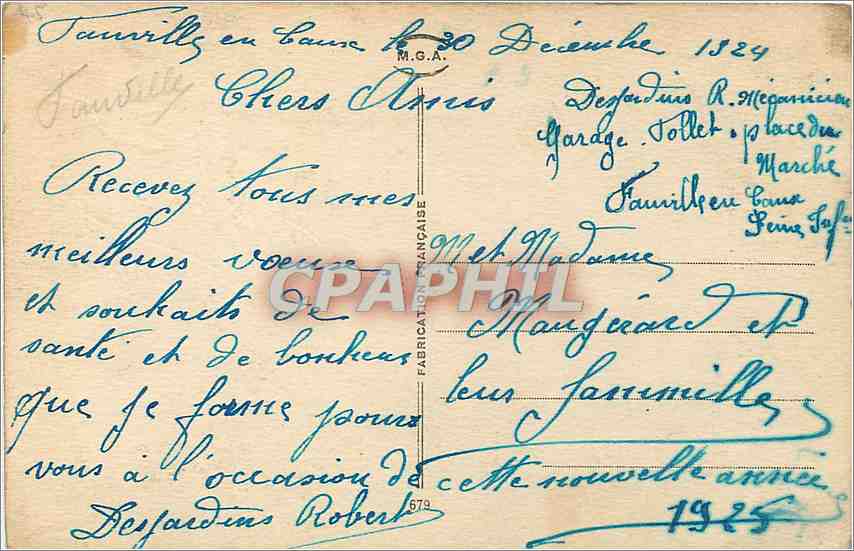 Fauville en Caux le 30 Décembre 1924
M.G.A.
Fauville
Chers Amis
Desjardins R. Mécanicien
Garage. Tollet. place du
Marché
Fauville en Caux
Seine Infre
Recevez tous mes
meilleurs voeux
et souhaits de
santé et de bonheur
que je forme pour
vous à l'occasion de cette nouvelle année
1925
Desjardins Robert
M et Madame
Maugérard et
leur fammille
FABRICATION FRANÇAISE
CPAPHIL
679